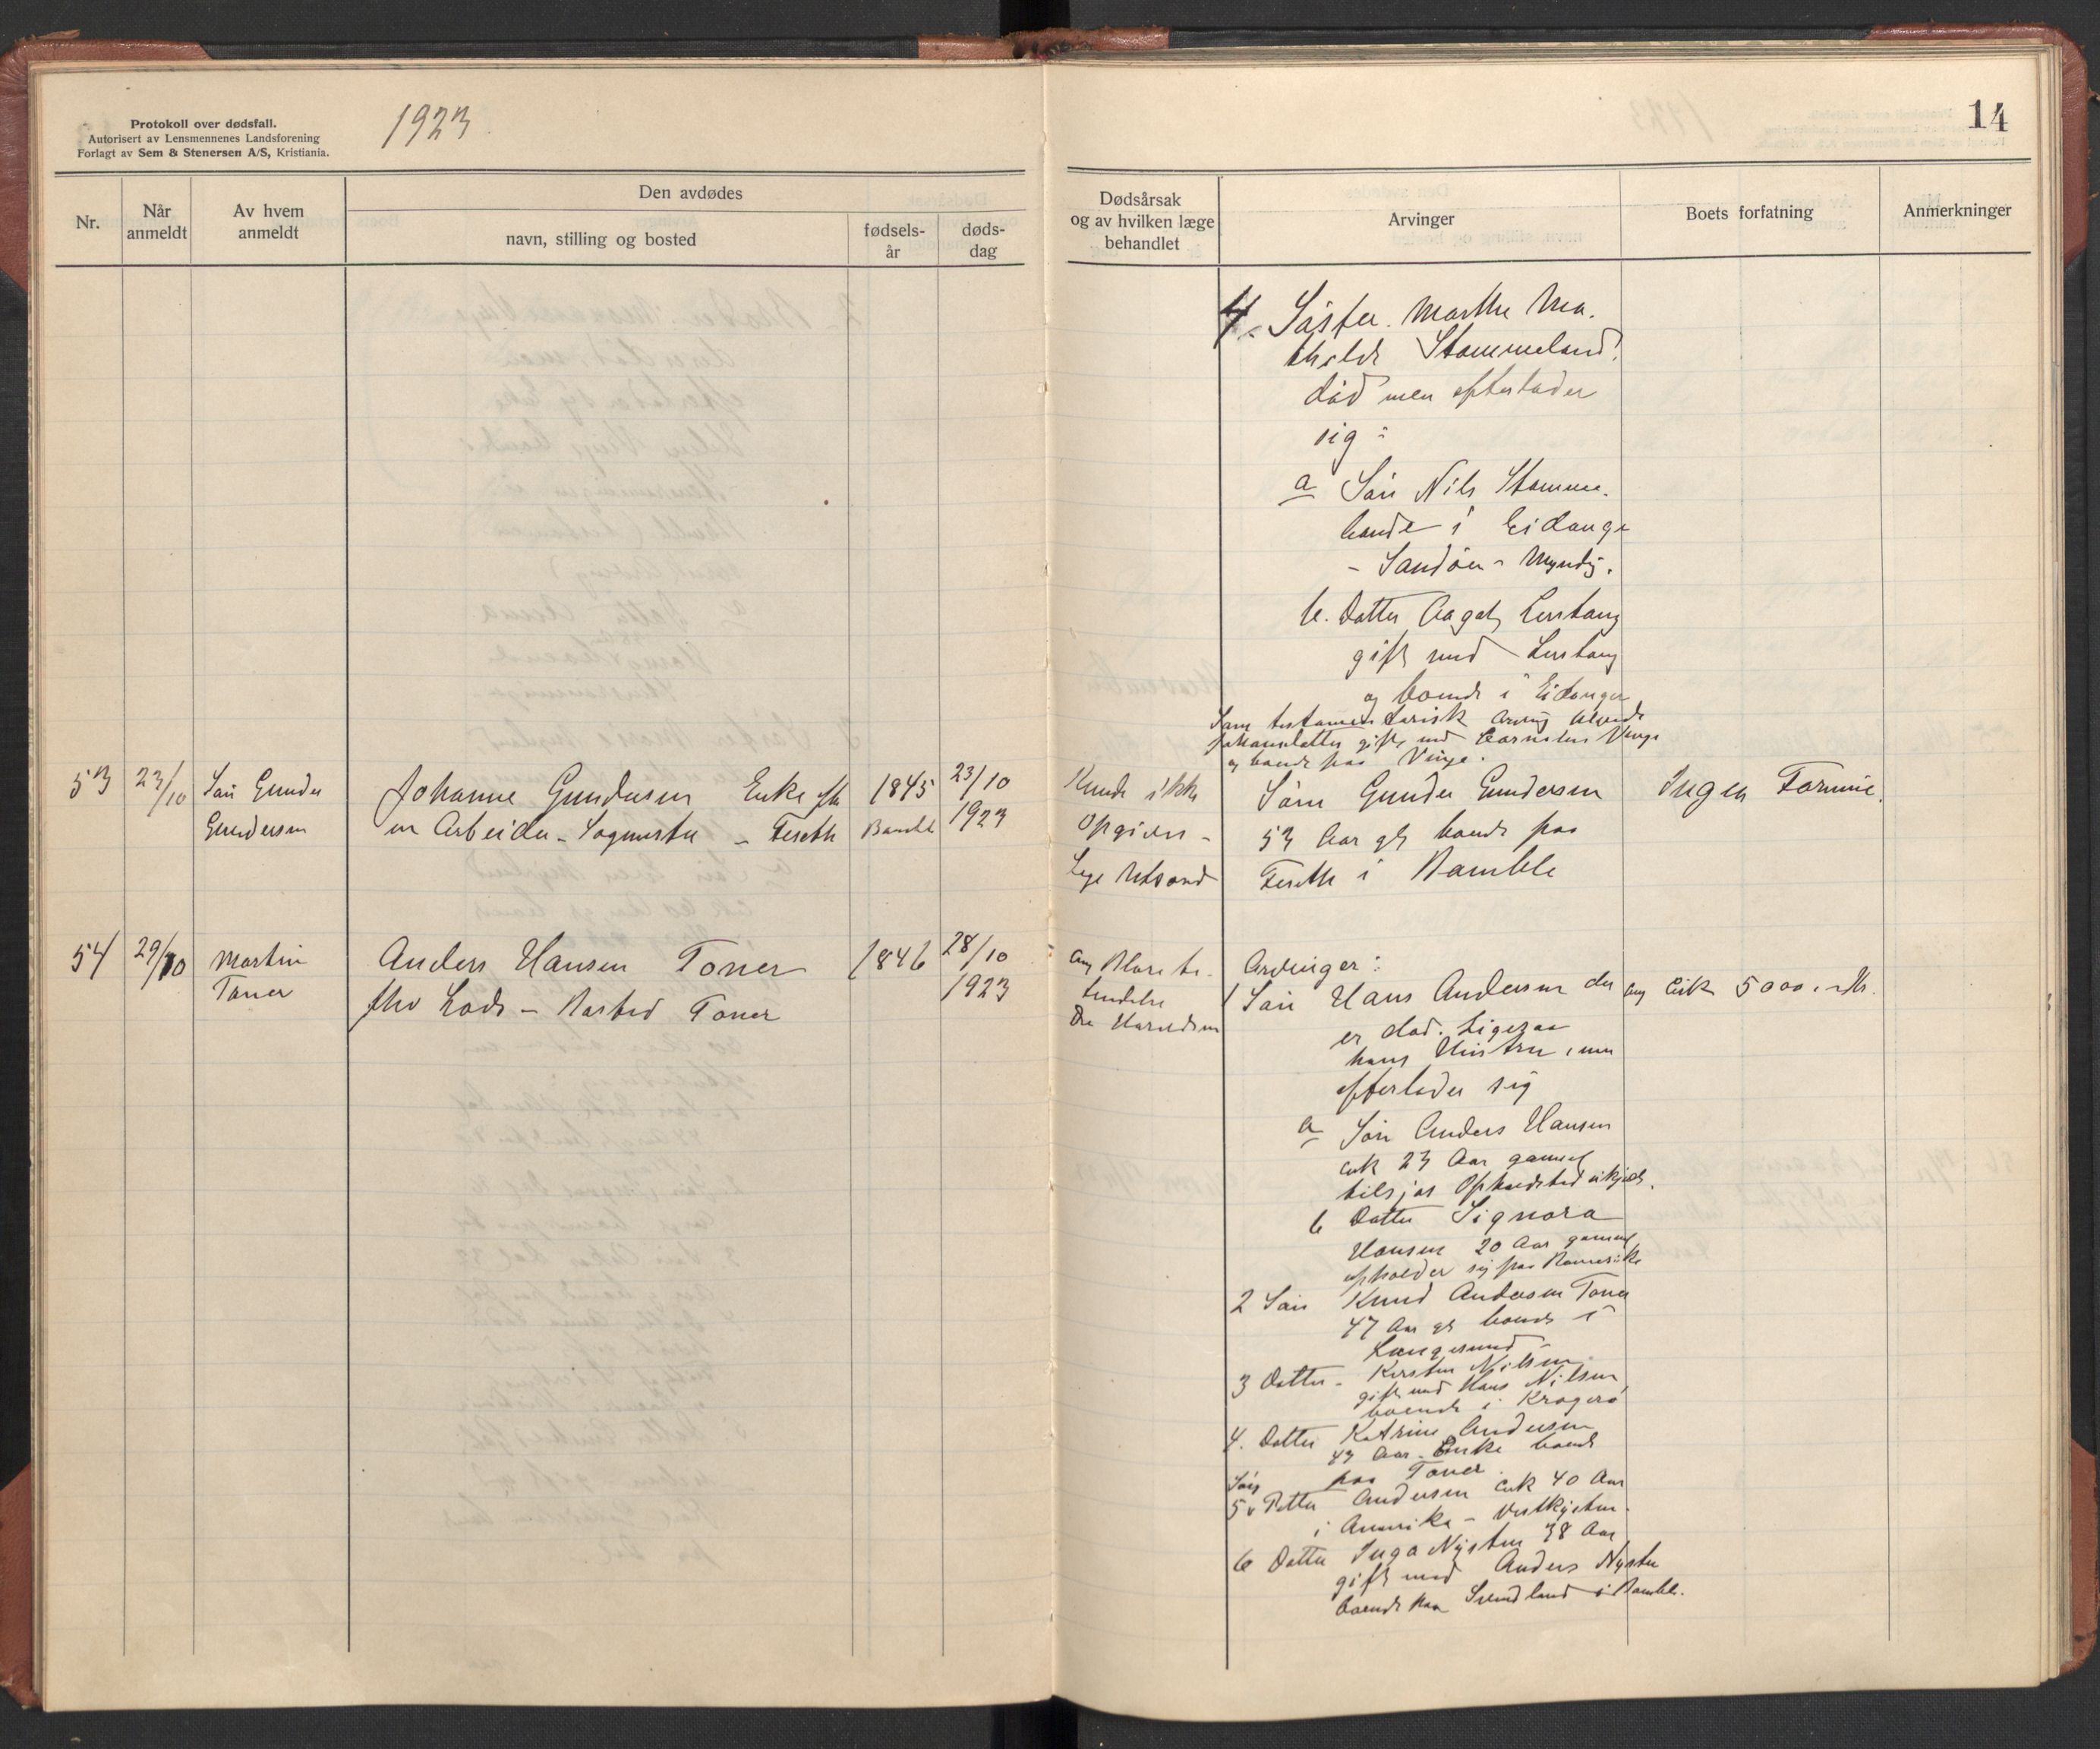 Protokoll over dødsfall.
Autorisert av Lensmennenes Landsforening
Forlagt av Sem & Stenersen A/S, Kristiania.
1923
14
Nr.
Når anmeldt
Av hvem anmeldt
Den avdødes
navn, stilling og bosted
fødsels-år
døds-dag
Dødsårsak
og av hvilken læge
behandlet
Arvinger
Boets forfatning
Anmerkninger
4. Søster. Marthe Ma.
thilde Stommeland.
død men efterlader
sig :
a Søn Nils Stomme.
lande i Eidange
- Sandøen - Myndig.
b. Datter Aagot Lerstang
gift med Lerstang
og boende i Eidanger
Som testamentarisk Arving
gift med Cornelius Vinge
og boende paa Vinge.
53 23/10 Søn Gunder
Gundersen
Johanne Gundersen Enke efter
en Arbeider - Fosseth
1845
Bamble
23/10
1923
Kunde ikke
Opgives -
Lege
Søn Gunder Gundersen
53 Aar gl boende paa
i Bamble
Ingen Formue.
54 29/10 Martin
Toner
Anders Hansen Toner
fhv Lods - Bosted Toner
1846
28/10
1923
Arvinger :
1 Søn Hans Andersen der
er død. Ligesaa
hans Hustru, men
efterlader sig
a Søn Anders Hansen
cirk 23 Aar gammel
tilsjøs Opholdsted ukjent.
b Datter Signora
Hansen 20 Aar gammel
opholder sig paa Romerike
2 Søn Knud Andersen Toner
47 Aar gl boende i
Langesund
3 Datter - Kirsten Nilsen
gift med Hans Nilsen,
boende i Kragerø
4. Datter Katrine Andersen
43 Aar - Enke boende
paa Toner.
Søn
5. Petter Andersen cirk 40 Aar
i Amerika - Vestkysten.
6 Datter Inga Nysten 38 Aar
gift med Anders Nysten
boende paa Svindland i Bamble.
ang Cirk 5000, - Kr.